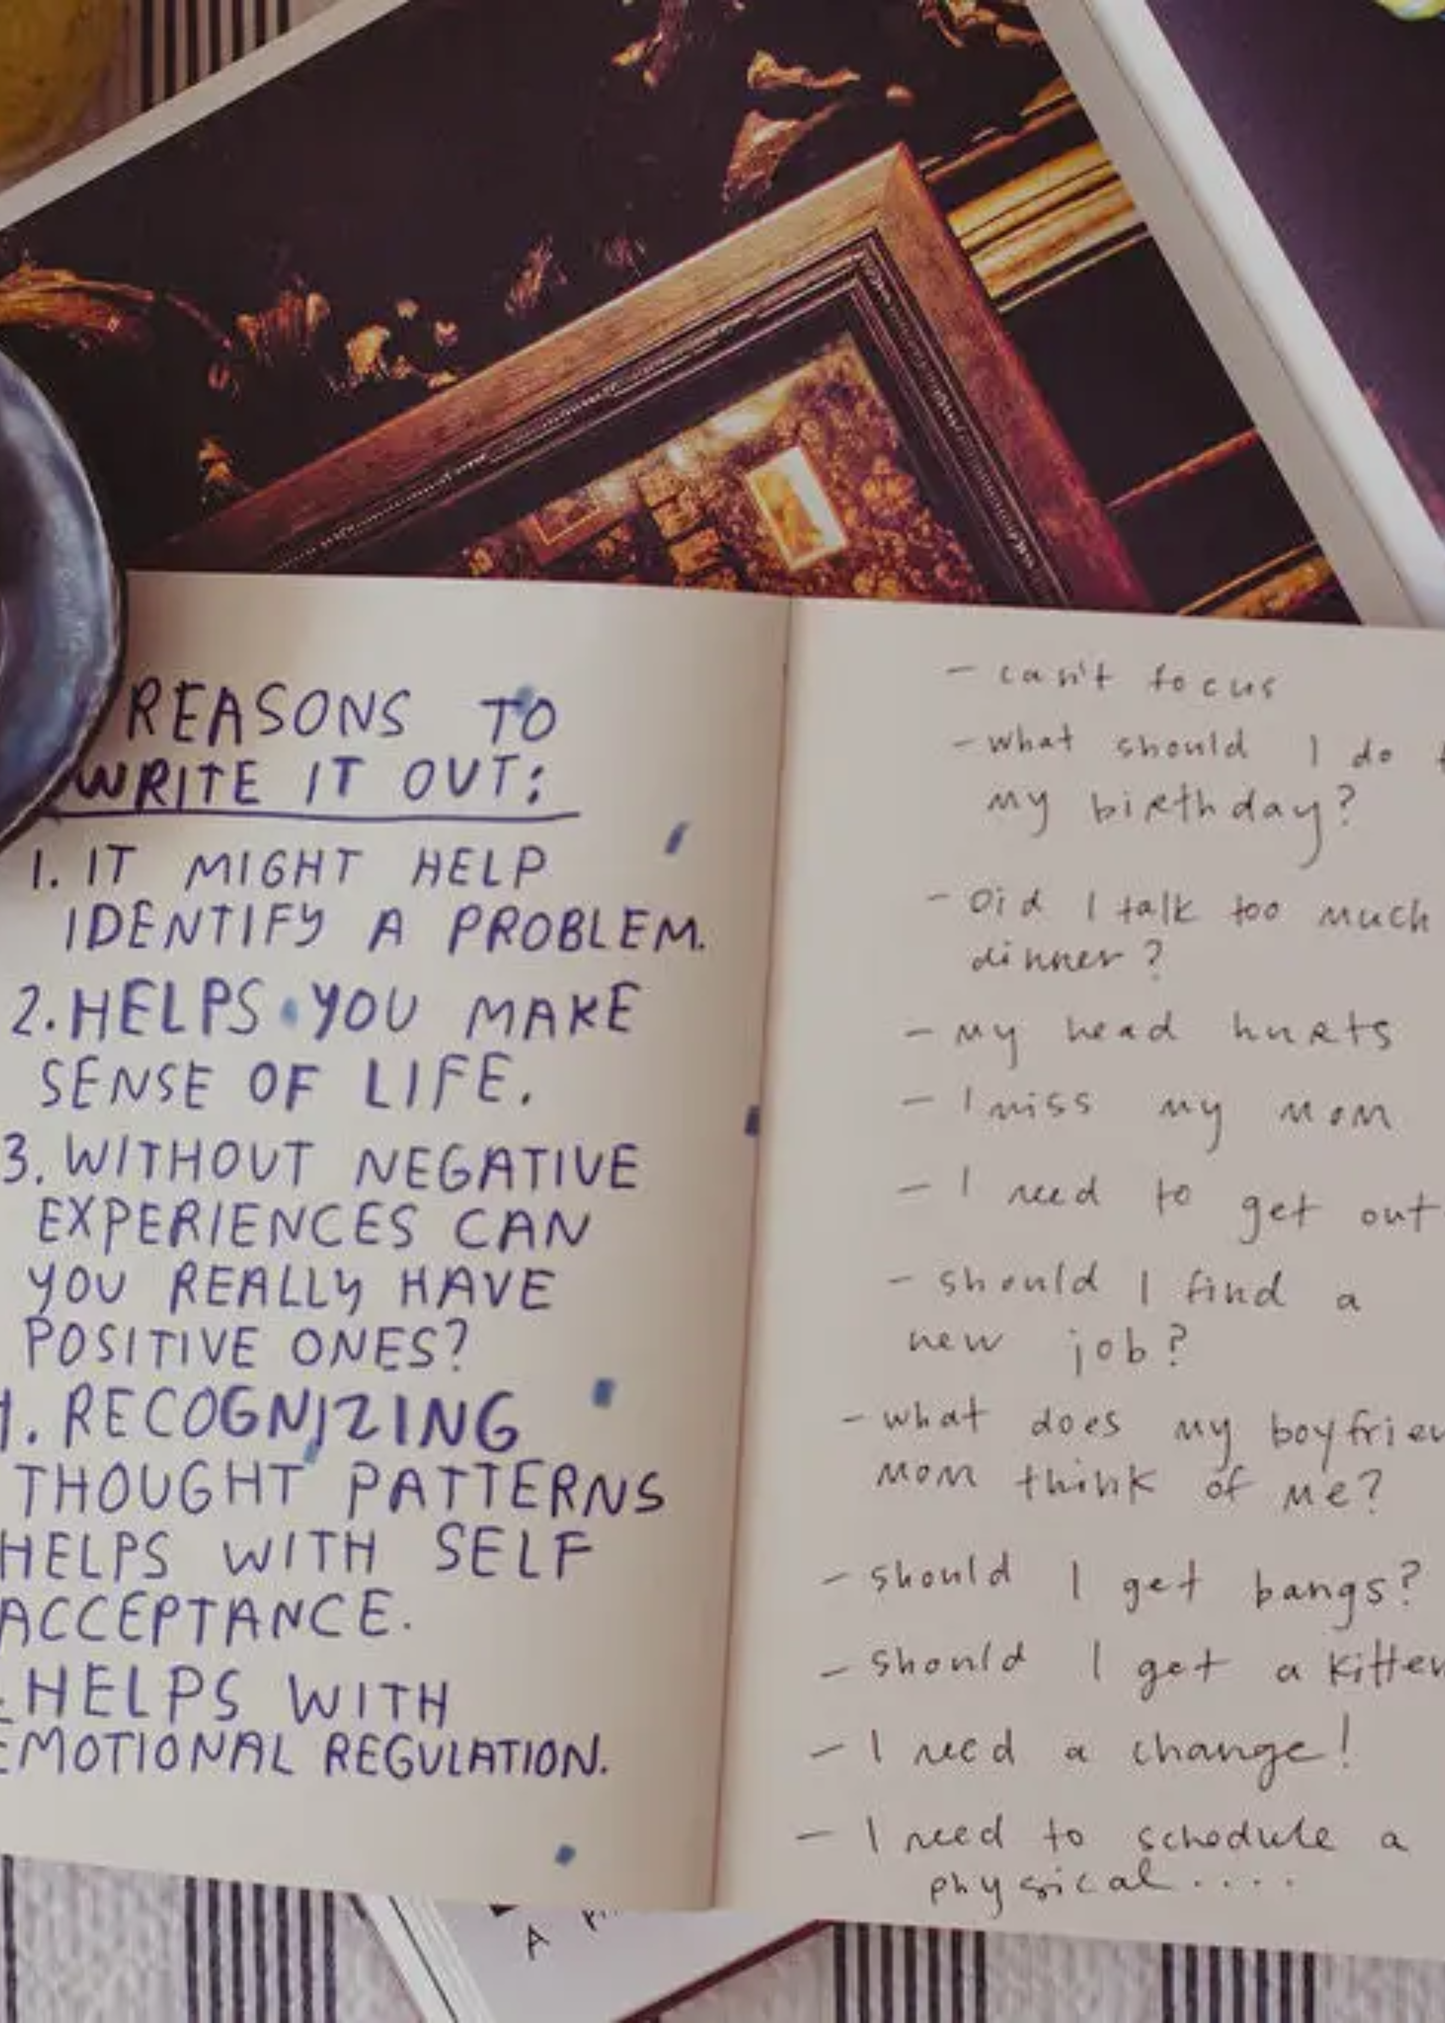 REASONS TO
WRITE IT OUT:
1. IT MIGHT HELP
IDENTIFY A PROBLEM.
2. HELPS YOU MAKE
SENSE OF LIFE.
3. WITHOUT NEGATIVE
EXPERIENCES CAN
YOU REALLY HAVE
POSITIVE ONES?
4. RECOGNIZING
THOUGHT PATTERNS
HELPS WITH SELF
ACCEPTANCE.
HELPS WITH
EMOTIONAL REGULATION.
- can't focus
- what should I do
my birthday?
- Did I talk too much
dinner?
- my head hurts
- I miss my mom
- I need to get out
- should I find a
new job?
- what does my boyfrien
mom think of me?
- should I get bangs?
- should I get a kitten
- I need a change!
- I need to schedule a
physical....
A